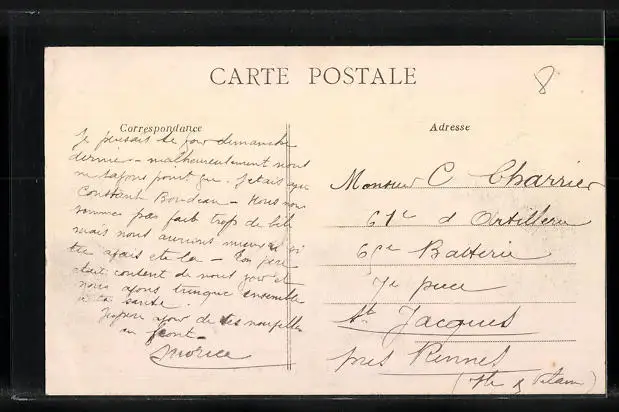 CARTE POSTALE
8
Correspondance
Adresse
Je pensais te voir dimanche
dernier - malheureusement nous
ne t'avons point vu. J'étais avec
Constant Bordeau - Nous nous
sommes pas fait trop de bile
mais nous aurions mieux si
tu avais été là - Ton père
était content de nous voir et
nous avons trinqué ensemble
à ta santé.
J'espère avoir de tes nouvelles
au front -
Morice
Monsieur C Charrier
61e d Artillerie
6e Batterie
7e pièce
St Jacques
près Rennes
(Ile & Vilaine)